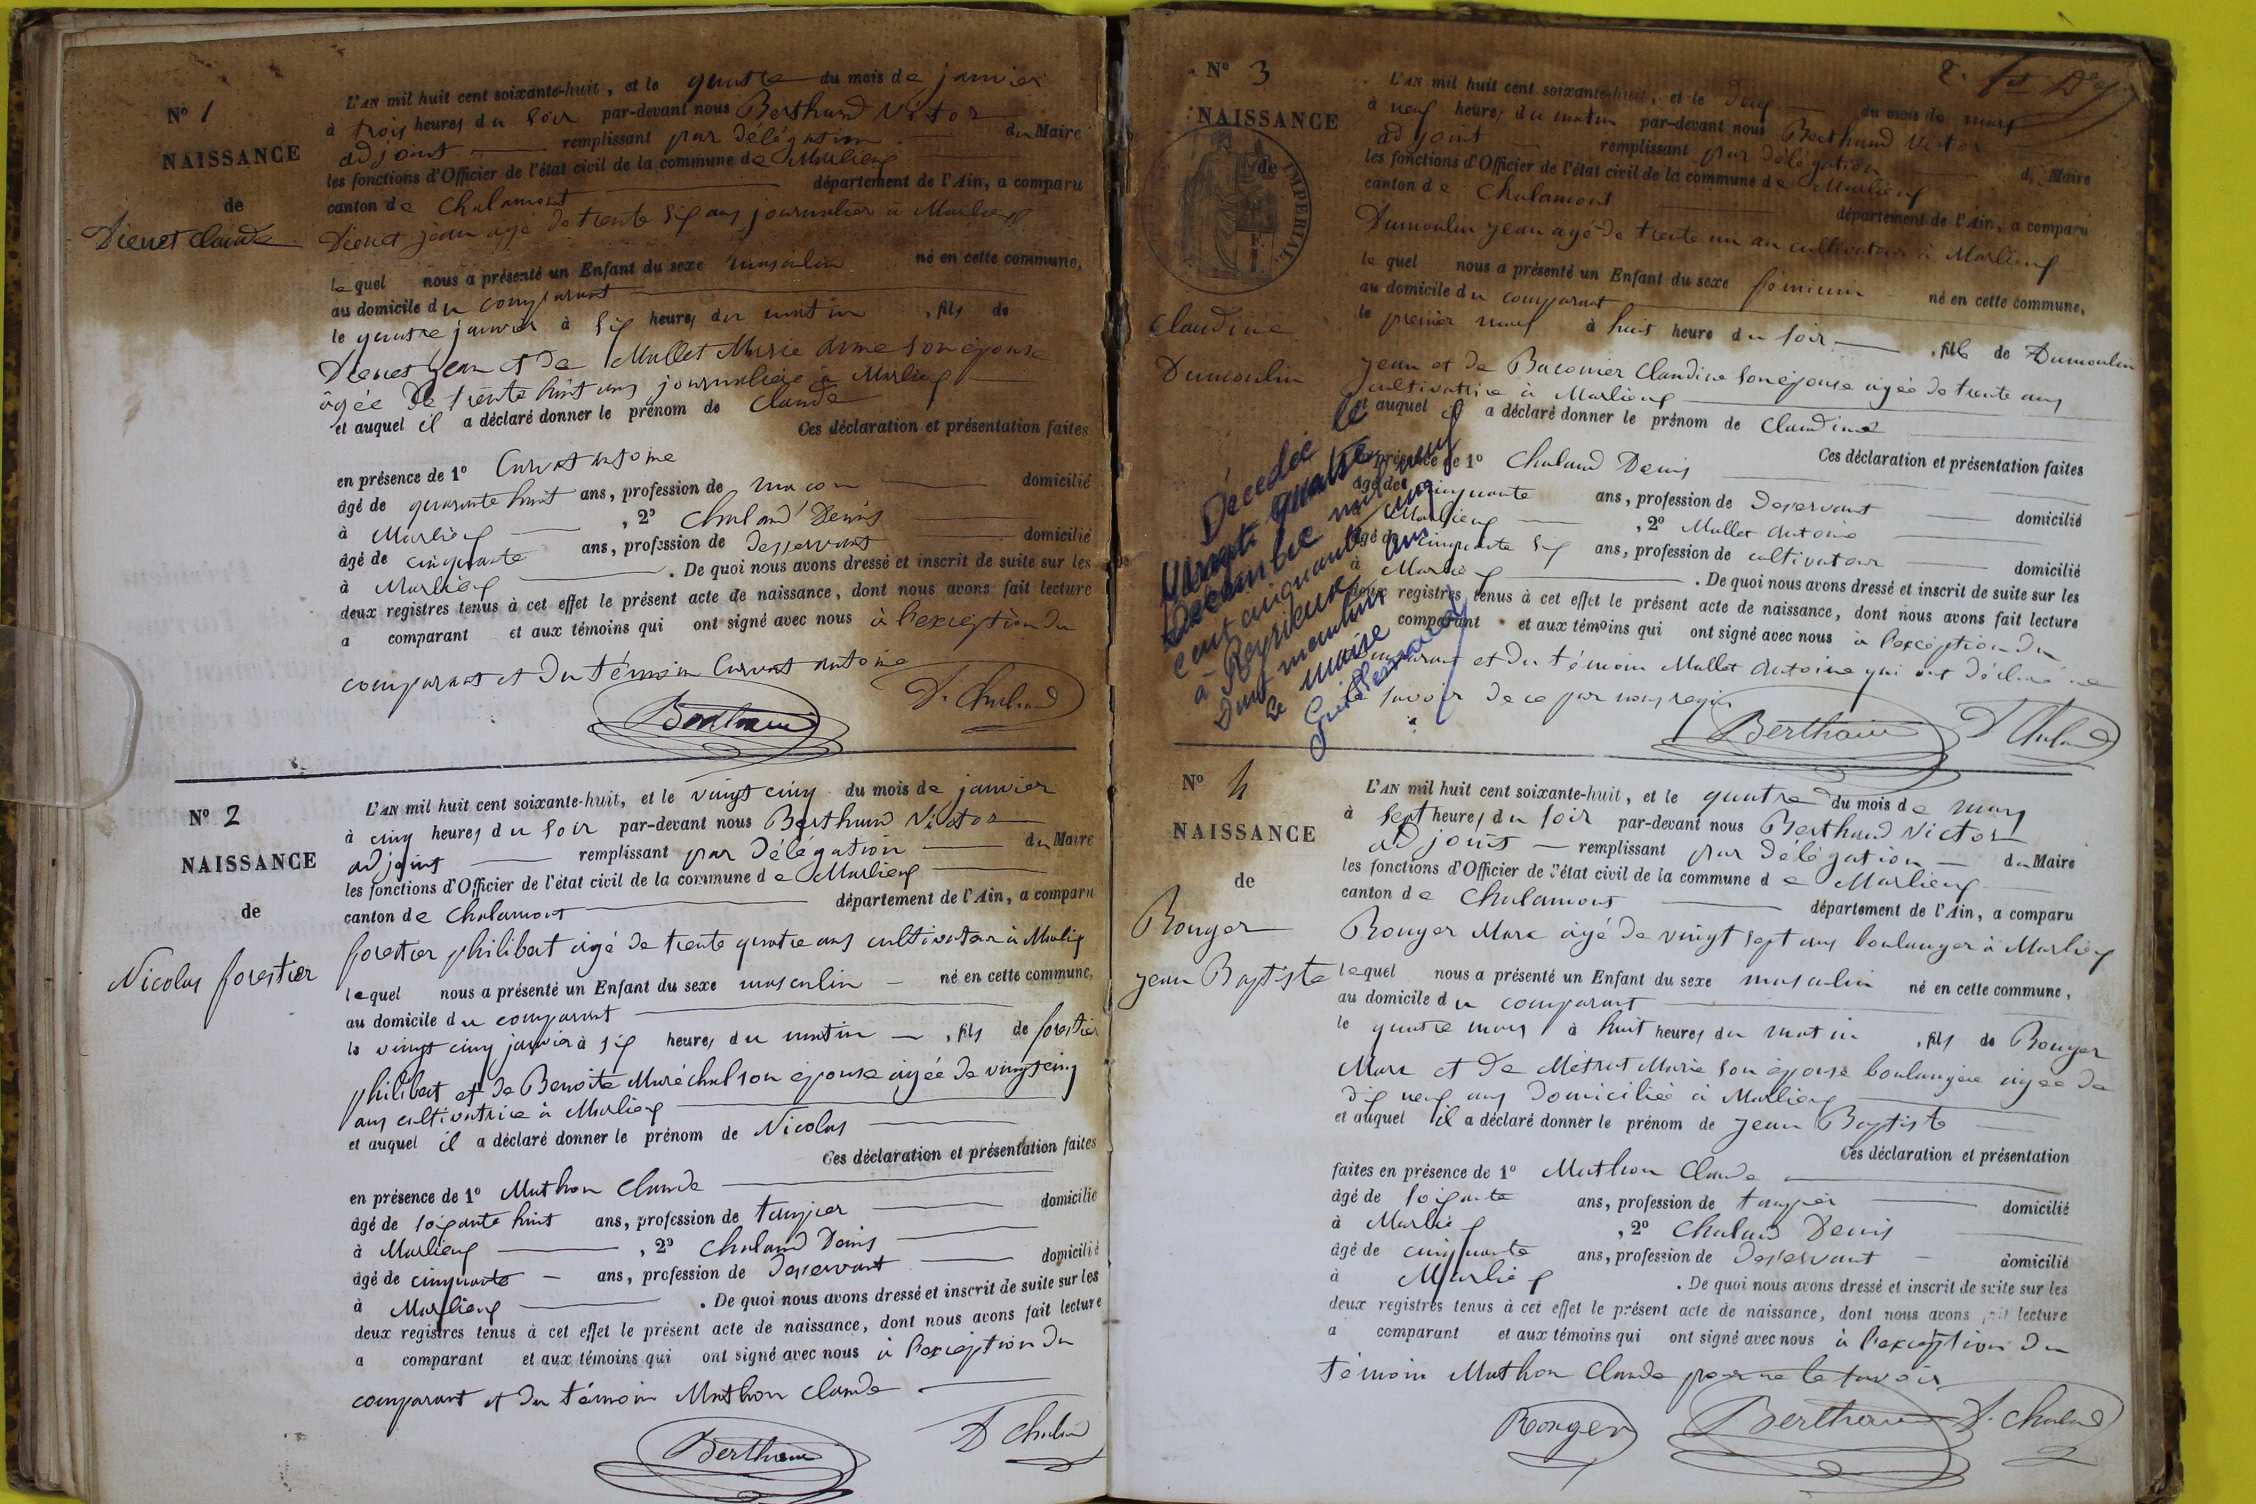 N° 1
NAISSANCE
de
Dienet Claude
L'AN mil huit cent soixante-huit, et le quatre du mois de janvier
à trois heures du soir par-devant nous Berthaud Victor
adjoint remplissant par délégation du Maire
les fonctions d'Officier de l'état civil de la commune de Marlieux
canton de Chalamont département de l'Ain, a comparu
Dienet jean agé de trente six ans journalier à Marlieux
lequel nous a présenté un Enfant du sexe masculin né en cette commune,
au domicile du comparant
le quatre janvier à six heures du matin, fils de
Dienet jean et de Mallet Marie anne son épouse
âgée de trente huit ans journalière à Marlieux
et auquel il a déclaré donner le prénom de Claude
Ces déclaration et présentation faites
en présence de 1° Curvat antoine
âgé de quarante huit ans, profession de maçon domicilié
à Marlieux, 2° Chaland Denis
âgé de cinquante ans, profession de desservant domicilié
à Marlieux. De quoi nous avons dressé et inscrit de suite sur les
deux registres tenus à cet effet le présent acte de naissance, dont nous avons fait lecture
a comparant et aux témoins qui ont signé avec nous à l'exception du
comparant et du témoin Curvat antoine
Berthaud D. Chaland
N° 2
NAISSANCE
de
Nicolas forestier
L'AN mil huit cent soixante-huit, et le vingt cinq du mois de janvier
à cinq heures du soir par-devant nous Berthaud Victor
adjoint remplissant par délégation du Maire
les fonctions d'Officier de l'état civil de la commune de Marlieux
canton de Chalamont département de l'Ain, a comparu
forestier philibert agé de trente quatre ans cultivateur à Marlieux
lequel nous a présenté un Enfant du sexe masculin né en cette commune,
au domicile du comparant
le vingt cinq janvier à six heures du matin, fils de forestier
philibert et de Benoite Maréchal son épouse agée de vingt cinq
ans cultivatrice à Marlieux
et auquel il a déclaré donner le prénom de Nicolas
Ces déclaration et présentation faites
en présence de 1° Mathon Claude
âgé de soixante huit ans, profession de taupier domicilié
à Marlieux, 2° Chaland Denis
âgé de cinquante ans, profession de desservant domicilié
à Marlieux. De quoi nous avons dressé et inscrit de suite sur les
deux registres tenus à cet effet le présent acte de naissance, dont nous avons fait lecture
a comparant et aux témoins qui ont signé avec nous à l'exception du
comparant et du témoin Mathon Claude
Berthaud D. Chaland
N° 3
NAISSANCE
de
IMPERIAL
Claudine
Dumoulin
L'AN mil huit cent soixante-huit, et le deux du mois de mars
à neuf heures du matin par-devant nous Berthaud Victor
adjoint remplissant par délégation du Maire
les fonctions d'Officier de l'état civil de la commune de Marlieux
canton de Chalamont département de l'Ain, a comparu
Dumoulin jean agé de trente un an cultivateur à Marlieux
lequel nous a présenté un Enfant du sexe féminin né en cette commune,
au domicile du comparant
le premier mars à huit heure du soir, fille de Dumoulin
jean et de Baconier Claudine son épouse agée de trente ans
cultivatrice à Marlieux
et auquel il a déclaré donner le prénom de Claudine
Ces déclaration et présentation faites
en présence de 1° Chaland Denis
âgé de cinquante ans, profession de desservant domicilié
à Marlieux, 2° Mallet antoine
âgé de cinquante six ans, profession de cultivateur domicilié
à Marlieux. De quoi nous avons dressé et inscrit de suite sur les
deux registres tenus à cet effet le présent acte de naissance, dont nous avons fait lecture
a comparant et aux témoins qui ont signé avec nous à l'exception du
comparant et du témoin Mallet antoine qui ont déclaré ne
savoir de ce par nous requis
Berthaud D. Chaland
Décédée le
vingt quatre
Décembre mil neuf
cent cinquante cinq
à Reyrieux Ain
Dont mention
Le Maire
N° 4
NAISSANCE
de
Rouger
jean Baptiste
L'AN mil huit cent soixante-huit, et le quatre du mois de mars
à sept heures du soir par-devant nous Berthaud Victor
adjoint remplissant par délégation du Maire
les fonctions d'Officier de l'état civil de la commune de Marlieux
canton de Chalamont département de l'Ain, a comparu
Rouger Marc agé de vingt sept ans boulanger à Marlieux
lequel nous a présenté un Enfant du sexe masculin né en cette commune,
au domicile du comparant
le quatre mars à huit heures du matin, fils de Rouger
Marc et de Métrat Marie son épouse boulangère agée de
dix neuf ans domiciliée à Marlieux
et auquel il a déclaré donner le prénom de jean Baptiste
Ces déclaration et présentation
faites en présence de 1° Mathon Claude
âgé de soixante ans, profession de taupier domicilié
à Marlieux, 2° Chaland Denis
âgé de cinquante ans, profession de desservant domicilié
à Marlieux. De quoi nous avons dressé et inscrit de suite sur les
deux registres tenus à cet effet le présent acte de naissance, dont nous avons fait lecture
a comparant et aux témoins qui ont signé avec nous à l'exception du
témoin Mathon Claude pour ne le savoir
Rouger Berthaud D. Chaland